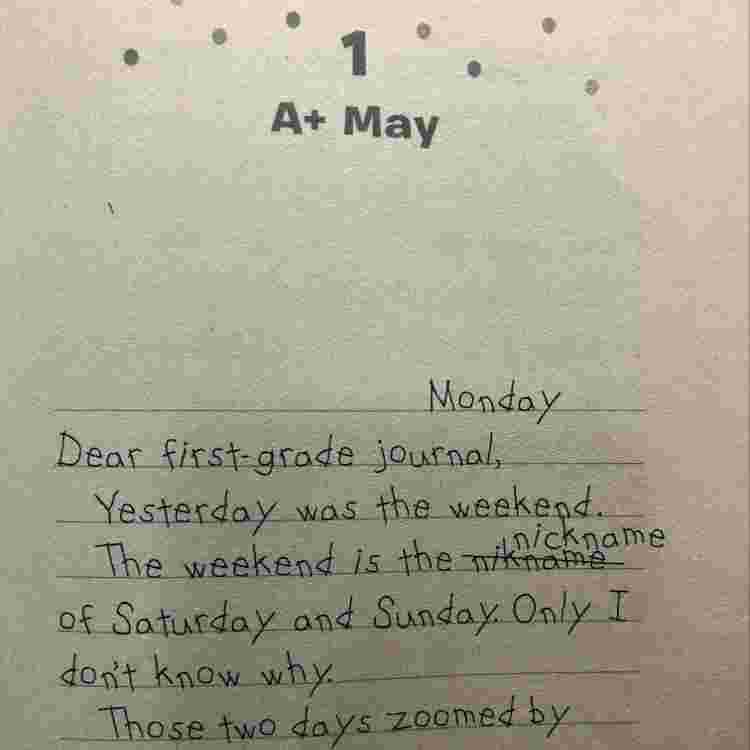 1
A+ May
Monday
Dear first-grade journal,
Yesterday was the weekend.
The weekend is the nikname nickname
of Saturday and Sunday. Only I
don't know why.
Those two days zoomed by